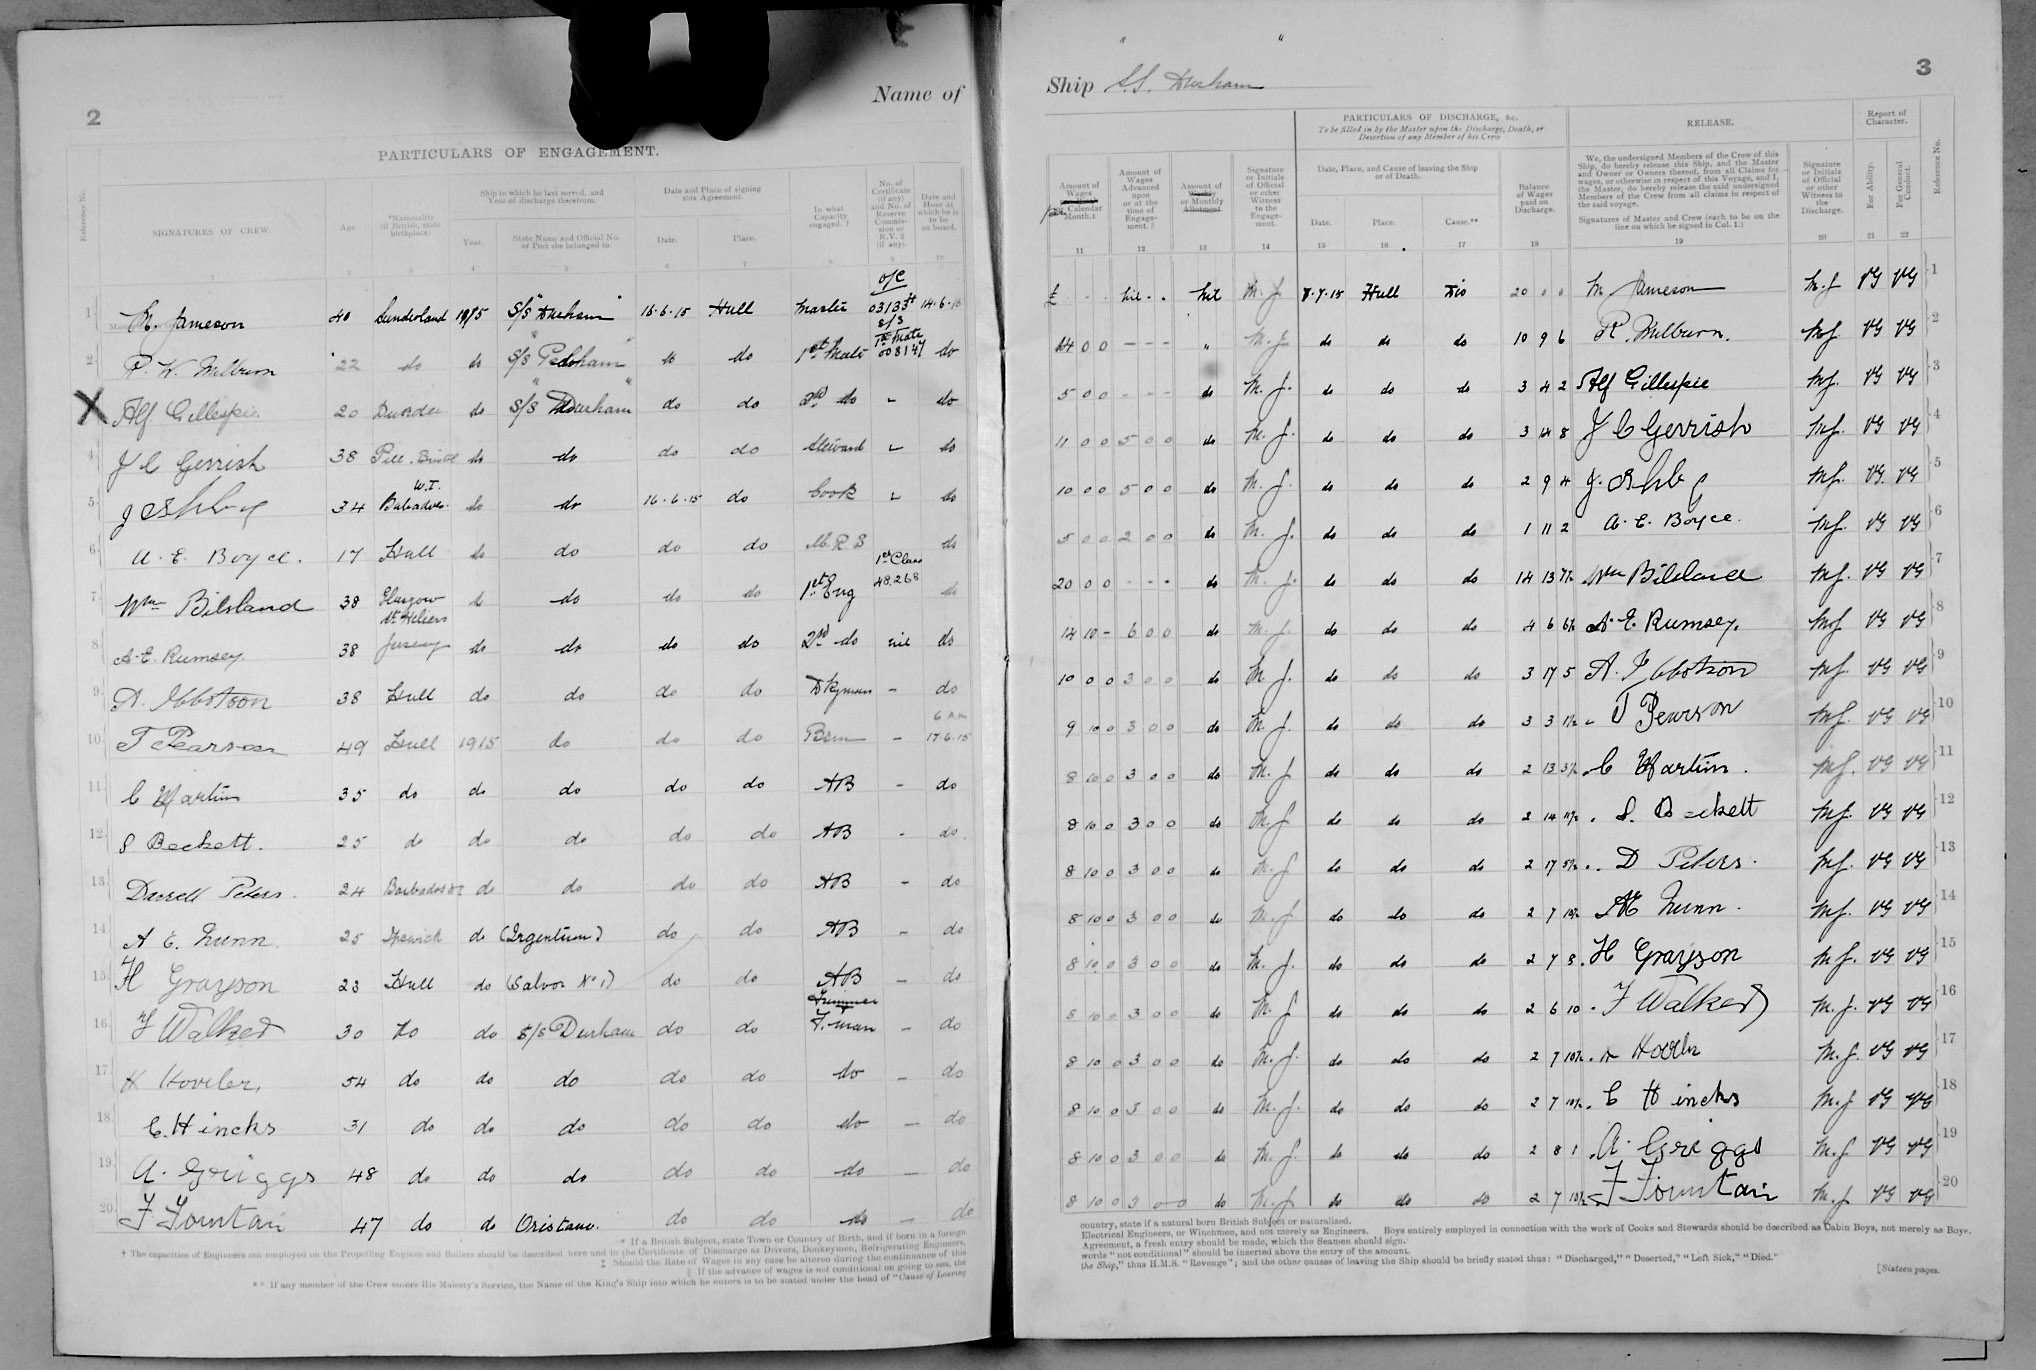 2
Name of
PARTICULARS OF ENGAGEMENT.
Reference No.
SIGNATURES OF CREW.
Age.
*Nationality (if British, state birthplace)
Ship in which he last served, and Year of discharge therefrom.
Year.
State Name and Official No. or Port she belonged to.
Date and Place of signing this Agreement.
Date.
Place.
In what Capacity engaged. †
No. of Certificate (if any) and No. of Reserve Commission or R.V. 2 (if any).
Date and Hour at which he is to be on board.
1 2 3 4 5 6 7 8 9 10
1 M. Jameson 40 Sunderland 1915 S/S "Durham" 16.6.15 Hull Master o/c 031334 14.6.15
2 R. W. Milburn 22 do do S/S do do 1st Mate 008147 do
X Alf. Gillespie 20 Dundee do S/S "Durham" do do 2nd do - do
4 J C Gerrish 38 Pill. Bristol do do do do Steward - do
5 J Ashby 34 Barbados W.I. do do 16.6.15 do Cook - do
6 A. E. Boyce. 17 Hull do do do do M.R.S do
7 Wm Bilsland 38 Glasgow do do do do 1st Eng 1st Class 48268 do
8 A. E. Rumsey. 38 St Heliers Jersey do do do do 2nd do nil do
9 A. Ibbotson 38 Hull do do do do Dkyman - do
10 T Pearson 49 Hull 1915 do do do Bsm - 6 a.m. 17.6.15
11 C Martin 35 do do do do do AB - do
12 S Beckett. 25 do do do do do AB - do
13 Darrell Peters. 24 Barbados WI do do do do AB - do
14 A E. Nunn. 25 Ipswich do (Argentum) do do AB - do
15 H Grayson 23 Hull do (Salvor No 1) do do AB - do
16 F Walker 30 do do S/S Durham do do F. man - do
17 do do do do do do - do
54
18 C. Hincks 31 do do do do do do - do
19 A. Griggs 48 do do do do do do - do
20 F Fountain 47 do do Oristano. do do do - do
* If a British Subject, state Town or Country of Birth, and if born in a foreign
† The capacities of Engineers not employed on the Propelling Engines and Boilers should be described here and in the Certificate of Discharge as Drivers, Donkeymen, Refrigerating Engineers,
‡ Should the Rate of Wages in any case be altered during the continuance of this
|| If the advance of wages is not conditional on going to sea, the
** If any member of the Crew enters His Majesty's Service, the Name of the King's Ship into which he enters is to be stated under the head of "Cause of Leaving
Ship S.S. Durham
3
PARTICULARS OF DISCHARGE, &c.
To be filled in by the Master upon the Discharge, Death, or Desertion of any Member of his Crew
RELEASE.
Report of Character.
Reference No.
Amount of Wages per Calendar Month.‡
Amount of Wages Advanced upon or at the time of Engagement.||
Amount of Weekly or Monthly Allotment.
Signature or Initials of Official or other Witness to the Engagement.
Date, Place, and Cause of leaving the Ship or of Death.
Date.
Place.
Cause.**
Balance of Wages paid on Discharge.
We, the undersigned Members of the Crew of this Ship, do hereby release this Ship, and the Master and Owner or Owners thereof, from all Claims for wages, or otherwise in respect of this Voyage, and I, the Master, do hereby release the said undersigned Members of the Crew from all claims in respect of the said voyage.
Signatures of Master and Crew (each to be on the line on which he signed in Col. 1.)
Signature or Initials of Official or other Witness to the Discharge.
For Ability.
For General Conduct.
11 12 13 14 15 16 17 18 19 20 21 22
£ - - nil - - nil M. J 8.7.15 Hull Dis 20 0 0 M. Jameson M. J VG VG 1
14 0 0 - - - " M. J do do do 10 9 6 R. Milburn. MJ. VG VG 2
5 0 0 - - - do M. J. do do do 3 4 2 Alf Gillespie MJ. VG VG 3
11 0 0 5 0 0 do M. J. do do do 3 14 8 J C Gerrish MJ. VG VG 4
10 0 0 5 0 0 do M. J. do do do 2 9 4 J. Ashby MJ. VG VG 5
5 0 0 2 0 0 do M. J. do do do 1 11 2 A. E. Boyce. MJ. VG VG 6
20 0 0 - - - do M. J. do do do 14 13 7½ Wm Bilsland MJ. VG VG 7
14 10 - 6 0 0 do M. J. do do do 4 6 6½ A. E. Rumsey. MJ VG VG 8
10 0 0 3 0 0 do M. J. do do do 3 17 5 A. Ibbotson MJ. VG VG 9
9 10 0 3 0 0 do M. J. do do do 3 3 1½ T Pearson MJ. VG VG 10
8 10 0 3 0 0 do M. J do do do 2 13 3½ C Martin. MJ. VG VG 11
8 10 0 3 0 0 do M. J do do do 2 14 11½ S. Beckett MJ. VG VG 12
8 10 0 3 0 0 do M. J do do do 2 17 5½ D Peters. MJ. VG VG 13
8 10 0 3 0 0 do M. J. do do do 2 7 10½ AE Nunn. MJ. VG VG 14
8 10 0 3 0 0 do M. J. do do do 2 7 8 H Grayson MJ. VG VG 15
8 10 0 3 0 0 do M. J do do do 2 6 10 F Walker M. J. VG VG 16
8 10 0 3 0 0 do M. J. do do do 2 7 10½ M. J. VG VG 17
8 10 0 3 0 0 do M. J. do do do 2 7 10½ C Hincks M. J VG VG 18
8 10 0 3 0 0 do M. J. do do do 2 8 1 A. Griggs M. J VG VG 19
8 10 0 3 0 0 do M. J do do do 2 7 10½ F Fountain M. J VG VG 20
country, state if a natural born British Subject or naturalized.
Electrical Engineers, or Winchmen, and not merely as Engineers. Boys entirely employed in connection with the work of Cooks and Stewards should be described as Cabin Boys, not merely as Boys.
Agreement, a fresh entry should be made, which the Seamen should sign.
words "not conditional" should be inserted above the entry of the amount.
the Ship," thus H.M.S. "Revenge"; and the other causes of leaving the Ship should be briefly stated thus: "Discharged," "Deserted," "Left Sick," "Died."
[Sixteen pages.